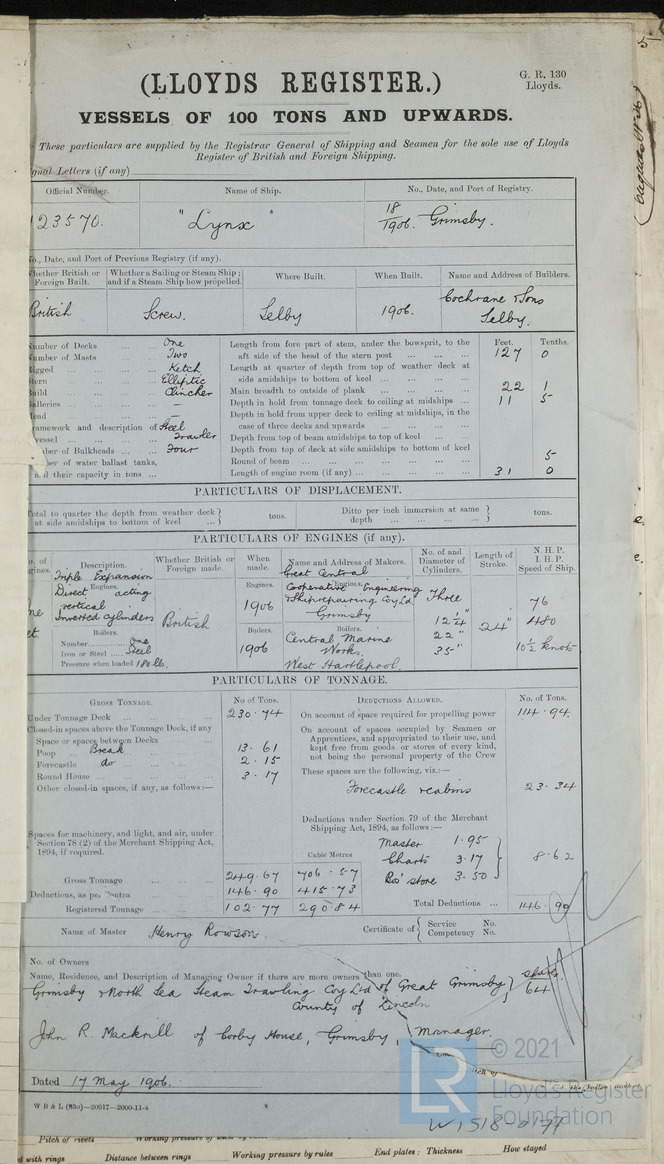 (LLOYDS REGISTER.)
G. R. 130
Lloyds.
VESSELS OF 100 TONS AND UPWARDS.
These particulars are supplied by the Registrar General of Shipping and Seamen for the sole use of Lloyds
Register of British and Foreign Shipping.
gnal Letters (if any)
Official Number. Name of Ship. No., Date, and Port of Registry.
23570. "Lynx" 18/1906. Grimsby.
No., Date, and Port of Previous Registry (if any).
Whether British or Foreign Built. Whether a Sailing or Steam Ship; and if a Steam Ship how propelled. Where Built. When Built. Name and Address of Builders.
British Screw. Selby 1906. Cochrane & Sons
Selby.
Number of Decks One
Number of Masts Two
Rigged Ketch
Stern Elliptic
Build Clincher
Galleries —
Head —
Framework and description of Steel
vessel Trawler
Number of Bulkheads Four
ber of water ballast tanks,
and their capacity in tons
Feet. Tenths.
Length from fore part of stem, under the bowsprit, to the
aft side of the head of the stern post 127 0
Length at quarter of depth from top of weather deck at
side amidships to bottom of keel
Main breadth to outside of plank 22 1
Depth in hold from tonnage deck to ceiling at midships 11 5
Depth in hold from upper deck to ceiling at midships, in the
case of three decks and upwards
Depth from top of beam amidships to top of keel
Depth from top of deck at side amidships to bottom of keel
Round of beam 5
Length of engine room (if any) 31 0
PARTICULARS OF DISPLACEMENT.
Total to quarter the depth from weather deck
at side amidships to bottom of keel } tons. Ditto per inch immersion at same
depth } tons.
PARTICULARS OF ENGINES (if any).
o. of gines. Description. Whether British or Foreign made. When made. Name and Address of Makers. No. of and Diameter of Cylinders. Length of Stroke. N.H.P. I.H.P. Speed of Ship.
Engines.
Triple Expansion
Direct acting
vertical
Inverted cylinders
British
Engines.
1906
Engines.
Great Central
Cooperative Engineering
& Shiprepairing Coy Ld
Grimsby
Three
12 1/4"
22"
35"
24"
76
480
10½ knots
Boilers.
Number One
Iron or Steel Steel
Pressure when loaded 180 lbs.
Boilers.
1906
Boilers.
Central Marine
Works,
West Hartlepool.
PARTICULARS OF TONNAGE.
GROSS TONNAGE. No of Tons. DEDUCTIONS ALLOWED. No. of Tons.
Under Tonnage Deck 230.74
Closed-in spaces above the Tonnage Deck, if any
Space or spaces between Decks
Poop Break 13.61
Forecastle do 2.15
Round House 3.17
Other closed-in spaces, if any, as follows:—
Spaces for machinery, and light, and air, under
Section 78 (2) of the Merchant Shipping Act,
1894, if required.
Cubic Metres
Gross Tonnage 249.67 706.57
Deductions, as per Contra 146.90 415.73
Registered Tonnage 102.77 290.84
On account of space required for propelling power 114.94.
On account of spaces occupied by Seamen or
Apprentices, and appropriated to their use, and
kept free from goods or stores of every kind,
not being the personal property of the Crew
These spaces are the following, viz.:—
Forecastle & cabins 23.34
Deductions under Section 79 of the Merchant
Shipping Act, 1894, as follows:—
Master 1.95
Charts 3.17
Bos' store 3.50
8.62
Total Deductions 146.90
Name of Master Henry Rowson. Certificate of { Service No.
Competency No.
No. of Owners
Name, Residence, and Description of Managing Owner if there are more owners than one.
Grimsby & North Sea Steam Trawling Coy Ltd of Great Grimsby,
County of Lincoln
shares
64
John R. Mackrill of Corby House, Grimsby, Manager.
Dated 17 May 1906.
W B & L (83o)—20017—2000-11-4
© 2021
Lloyd's Register
Foundation
W1518-0177
Pitch of rivets
Working pressure of
d with rings
Distance between rings
Working pressure by rules
End plates: Thickness
How stayed